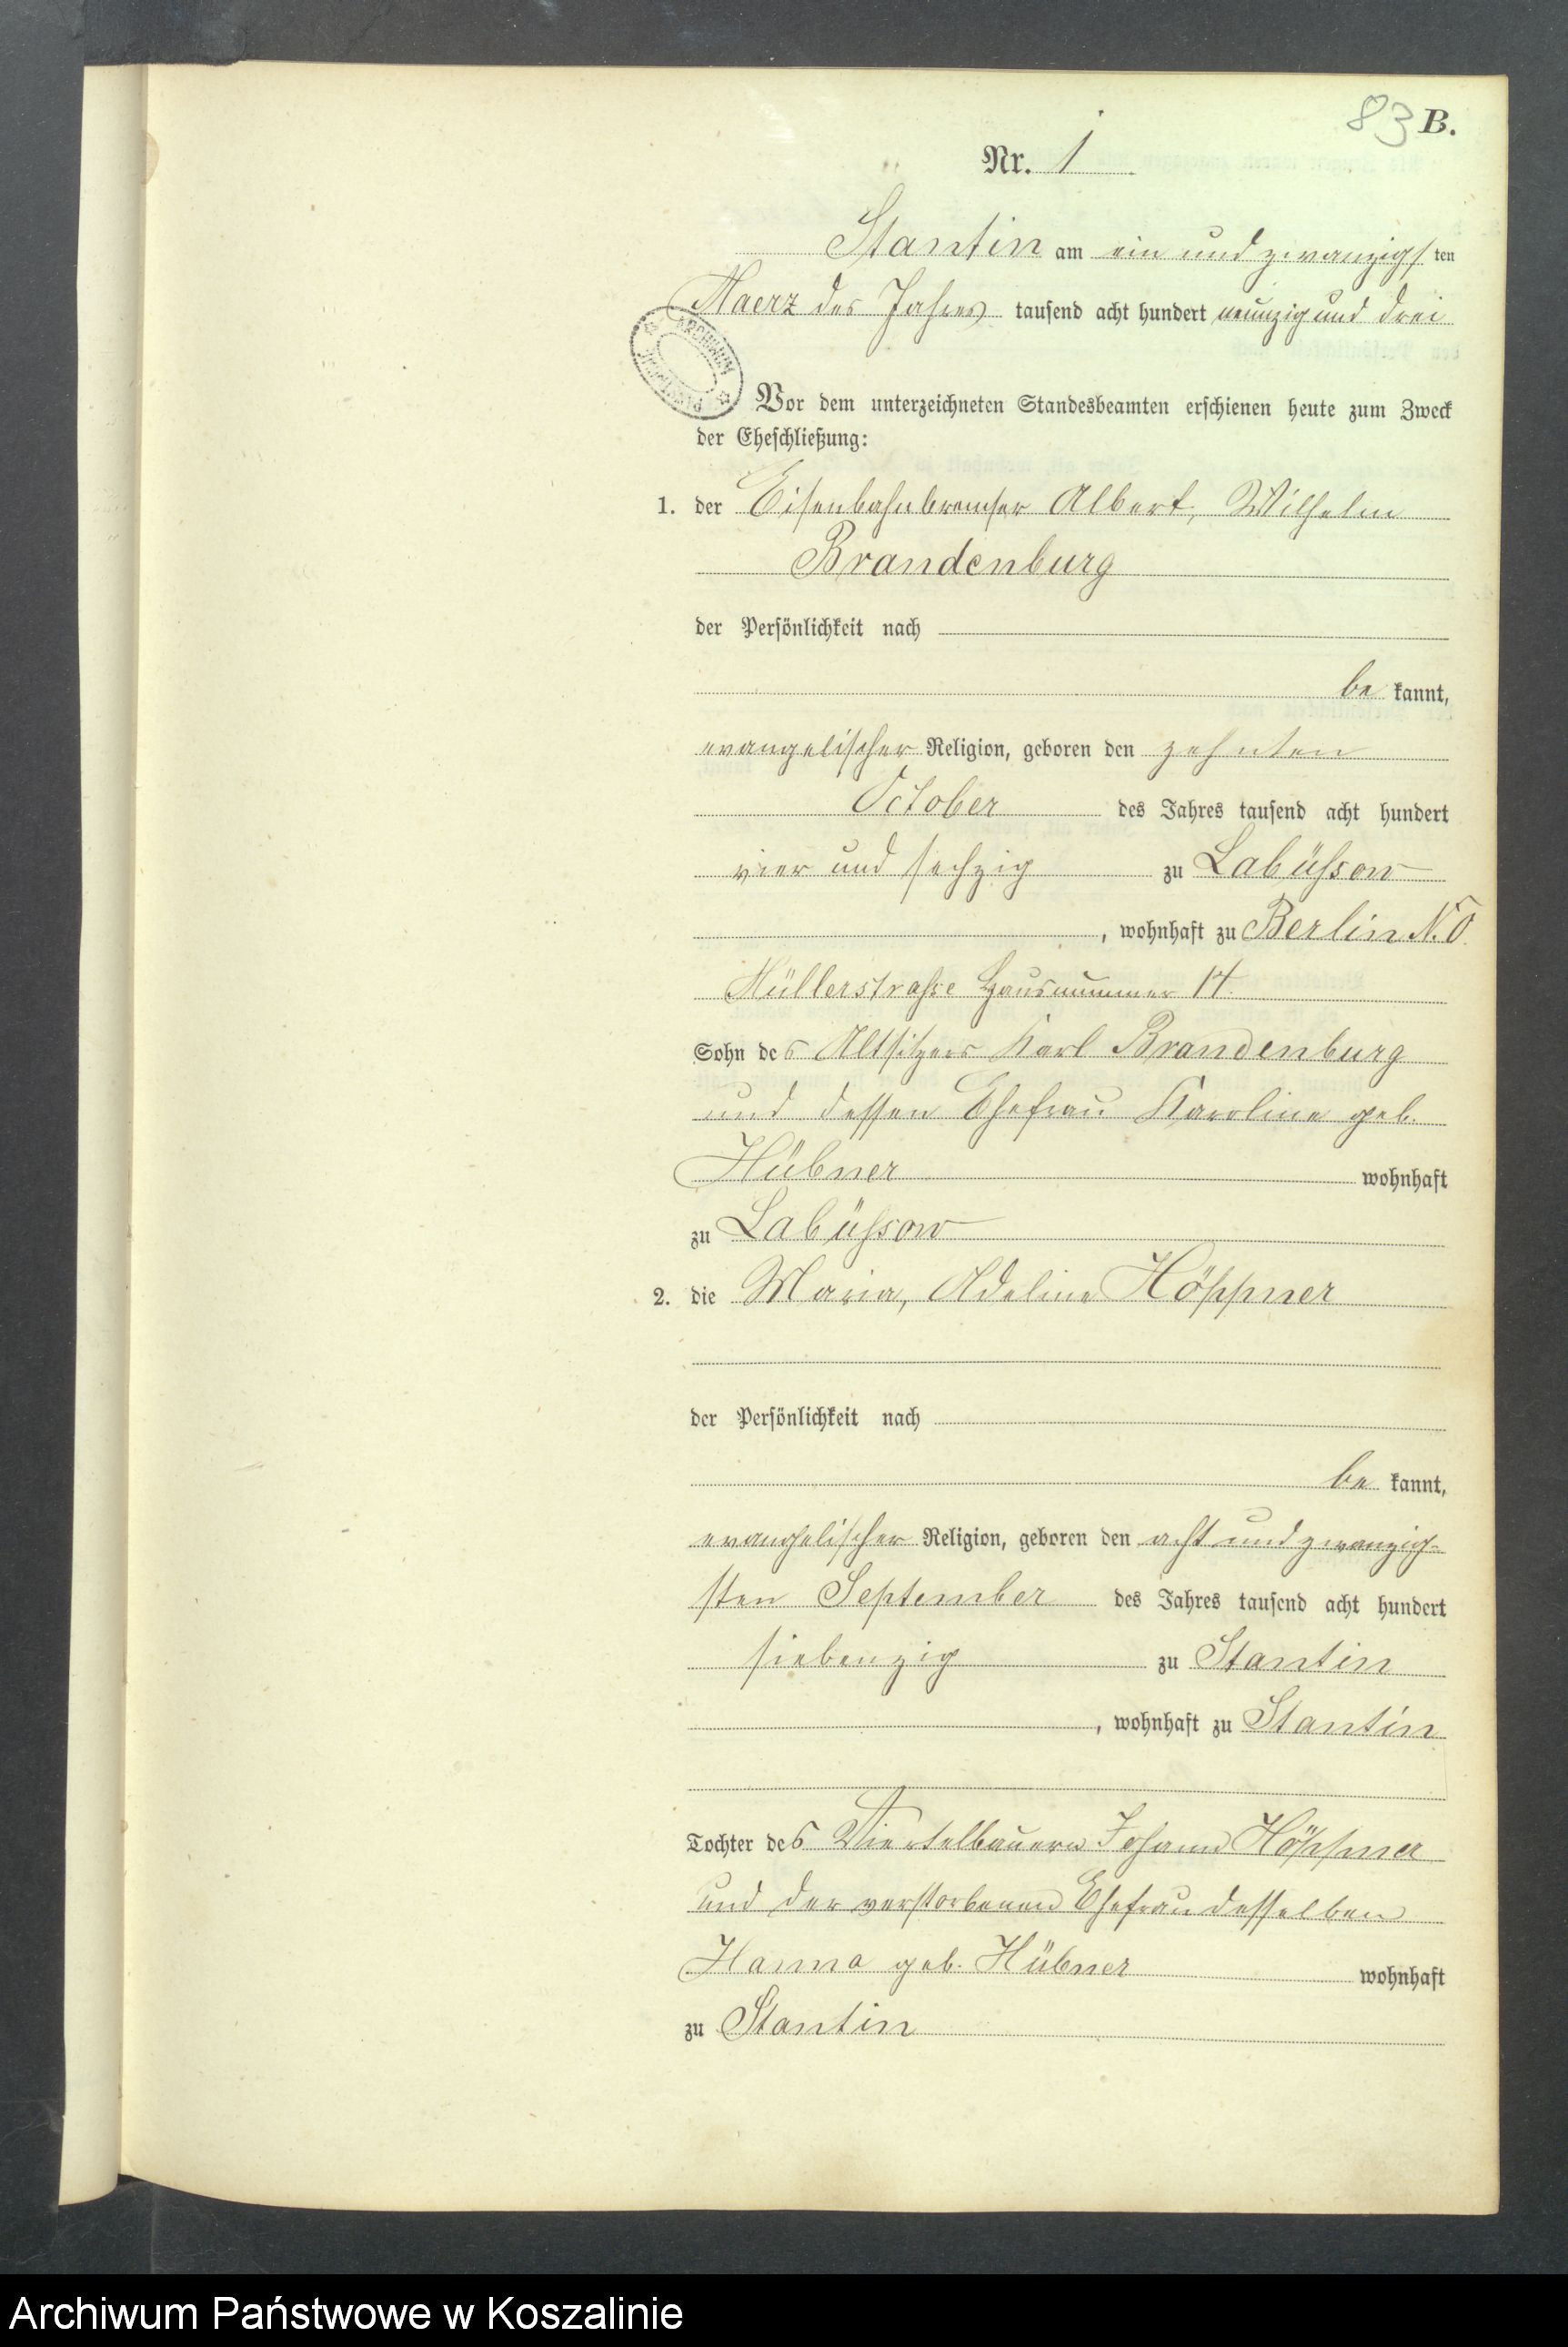 83 B.
Nr. 1
Stantin am ein und zwanzigsten
Maerz des Jahres tausend acht hundert neunzig und drei
ARCHIWUM
Vor dem unterzeichneten Standesbeamten erschienen heute zum Zweck
der Eheschließung:
1. der Eisenbahnbremser Albert, Wilhelm
Brandenburg
der Persönlichkeit nach
be kannt,
evangelischer Religion, geboren den zehnten
October des Jahres tausend acht hundert
vier und sechzig zu Labüssow
, wohnhaft zu Berlin N.O.
Müllerstrasse Hausnummer 14.
Sohn des Altsitzers Karl Brandenburg
und dessen Ehefrau Karoline geb.
Hübner wohnhaft
zu Labüssow
2. die Maria, Adeline Höppner
der Persönlichkeit nach
be kannt,
evangelischer Religion, geboren den acht und zwanzig-
sten September des Jahres tausend acht hundert
siebenzig zu Stantin
, wohnhaft zu Stantin
Tochter des Viertelbauern Johann Höppner
und der verstorbenen Ehefrau desselben
Hanna geb. Hübner wohnhaft
zu Stantin
Archiwum Państwowe w Koszalinie